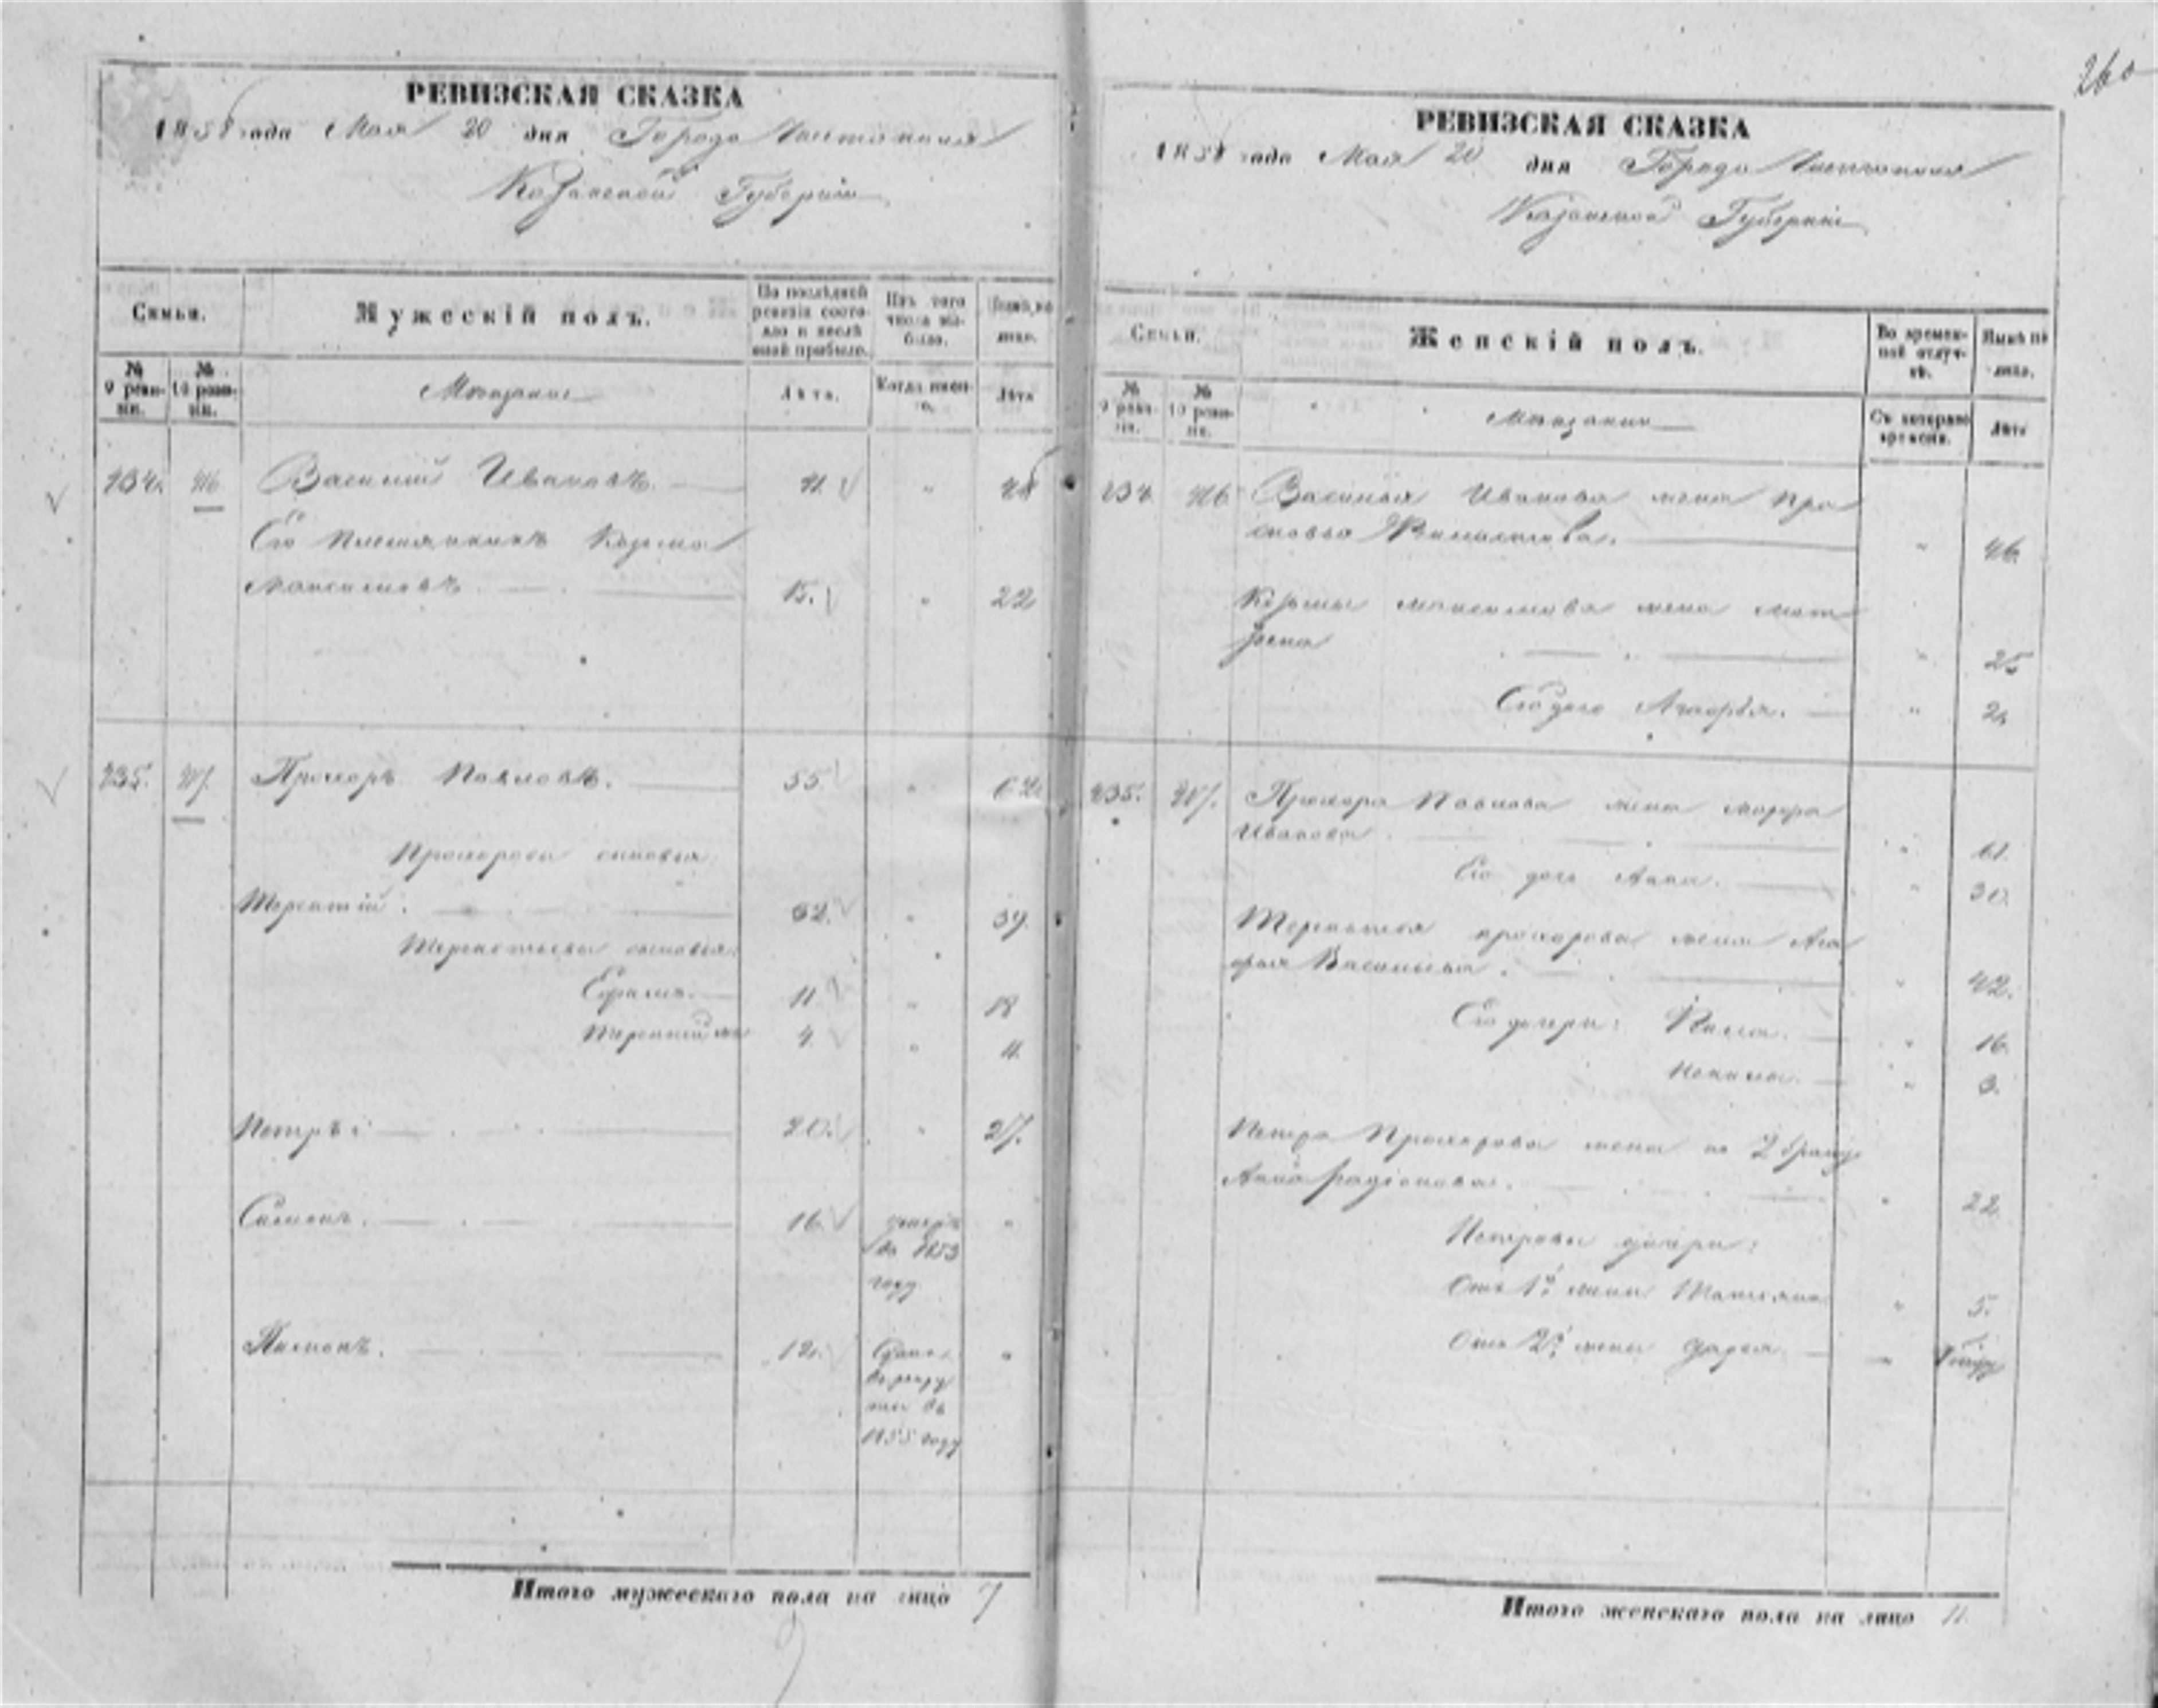 260
РЕВИЗСКАЯ СКАЗКА
1858 года Мая 20 дня Города Чистополя
Казанской Губерніи
Семьи.
Мужескій полъ.
По послѣдней ревизіи состояло и послѣ оной прибыло.
Изъ того числа выбыло.
Нынѣ на лицо.
№ 9 ревизіи.
№ 10 ревизіи.
Мѣщане
Лѣта.
Когда именно.
Лѣта
234. 216 Василій Ивановъ. 41 " 48
Его племянникъ Козьма
Максимовъ 15. " 22
235. 217. Прохоръ Павловъ. 55 " 62
Прохоровы сыновья
Терентій. 32. " 39.
Терентьевы сыновья:
Ефремъ. 11 " 18
Терентій 4. " 11.
Петръ: 20. " 27.
Симонъ. 16. умеръ "
въ 1853
году
Пименъ. 12. "
въ рекру
ты въ
1855 году
Итого мужескаго пола на лицо 7
РЕВИЗСКАЯ СКАЗКА
1858 года Мая 20 дня Города Чистополя
Казанской Губерніи
Семьи.
Женскій полъ.
Во временной отлучкѣ.
Нынѣ на лицо.
№ 9 ревизіи.
№ 10 ревизіи.
Мѣщанки
Съ котораго времени.
Лѣта
234. 216 Василья Иванова жена Пра
сковья " 46.
Козьмы Максимова жена Мат
рена " 25
Его дочь Агафья. " 2.
235. 217. Прохора Павлова жена Марфа
Иванова " 61.
Его дочь Анна. " 30.
Терентья Прохорова жена Ага
фья Васильева. " 42.
Его дочери: " 16.
" 3.
Петра Прохорова жена по 2 браку
Анна Радіонова. " 22
Петровы дочери:
Отъ 1й жены Татьяна " 5.
Отъ 2й жены Дарья. "
Итого женскаго пола на лицо 11.